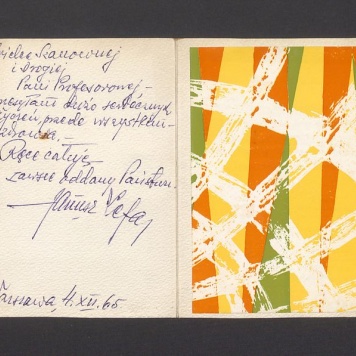 Wielce Szanownej
i Drogiej
Pani Profesorowej -
przesyłam dużo serdecznych
życzeń, przede wszystkim -
zdrowia. -
Ręce całuję
zawsze oddany Państwu
Janusz
Warszawa, 4.XII.65